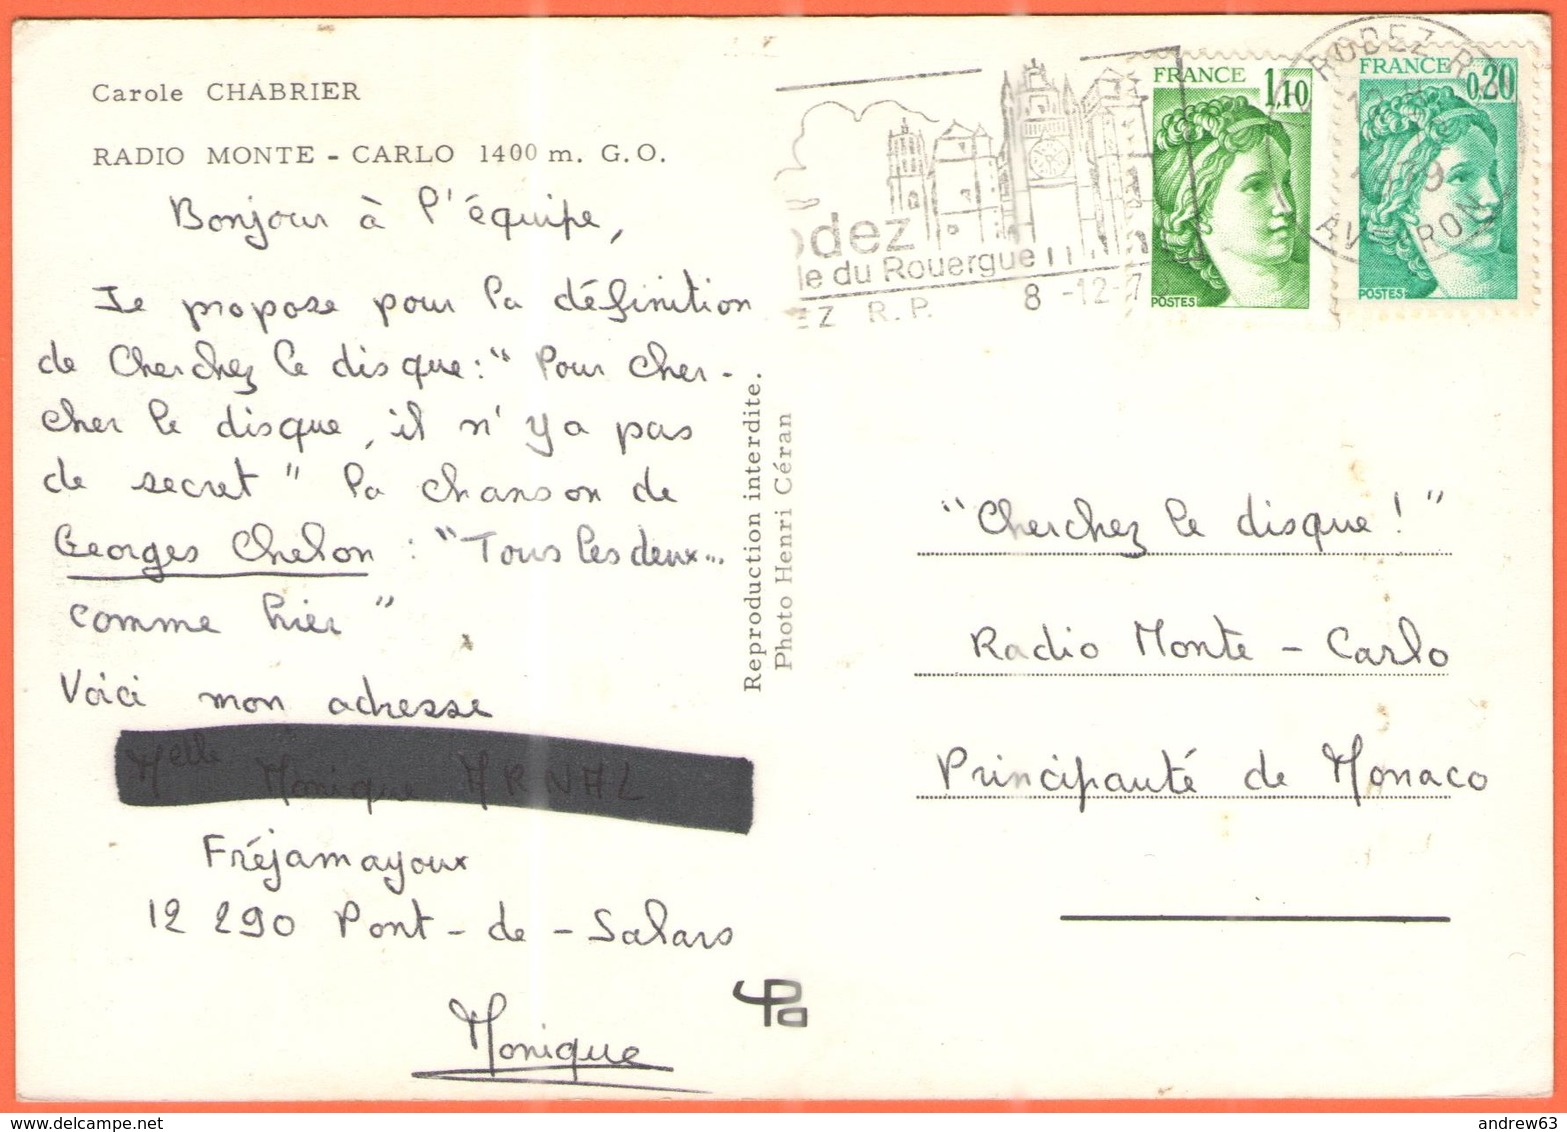 Carole CHABRIER
RADIO MONTE - CARLO 1400 m. G.O.
Bonjour à l'équipe,
Je propose pour la définition
de Cherchez le disque : " Pour cher-
cher le disque, il n'y a pas
de secret " la chanson de
Georges Chelon : "Tous les deux...
comme hier "
Voici mon adresse
Fréjamayoux
12 290 Pont-de-Salars
Monique
Reproduction interdite.
Photo Henri Céran
odez
le du Rouergue
EZ R.P. 8 -12-7
FRANCE
1,10
POSTES
FRANCE
0,20
POSTES
RODEZ R.
AVEYRON
"Cherchez le disque ! "
Radio Monte - Carlo
Principauté de Monaco
andrew63